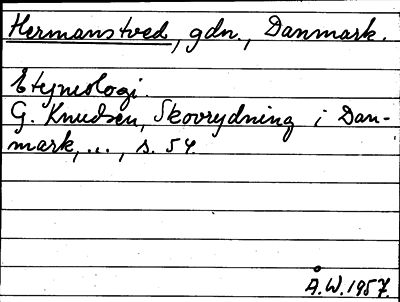 Hermanstved, gdn., Danmark.
Etymologi.
G. Knudsen, Skovrydning i Dan-
mark, ..., s. 54
Å.W. 1957.